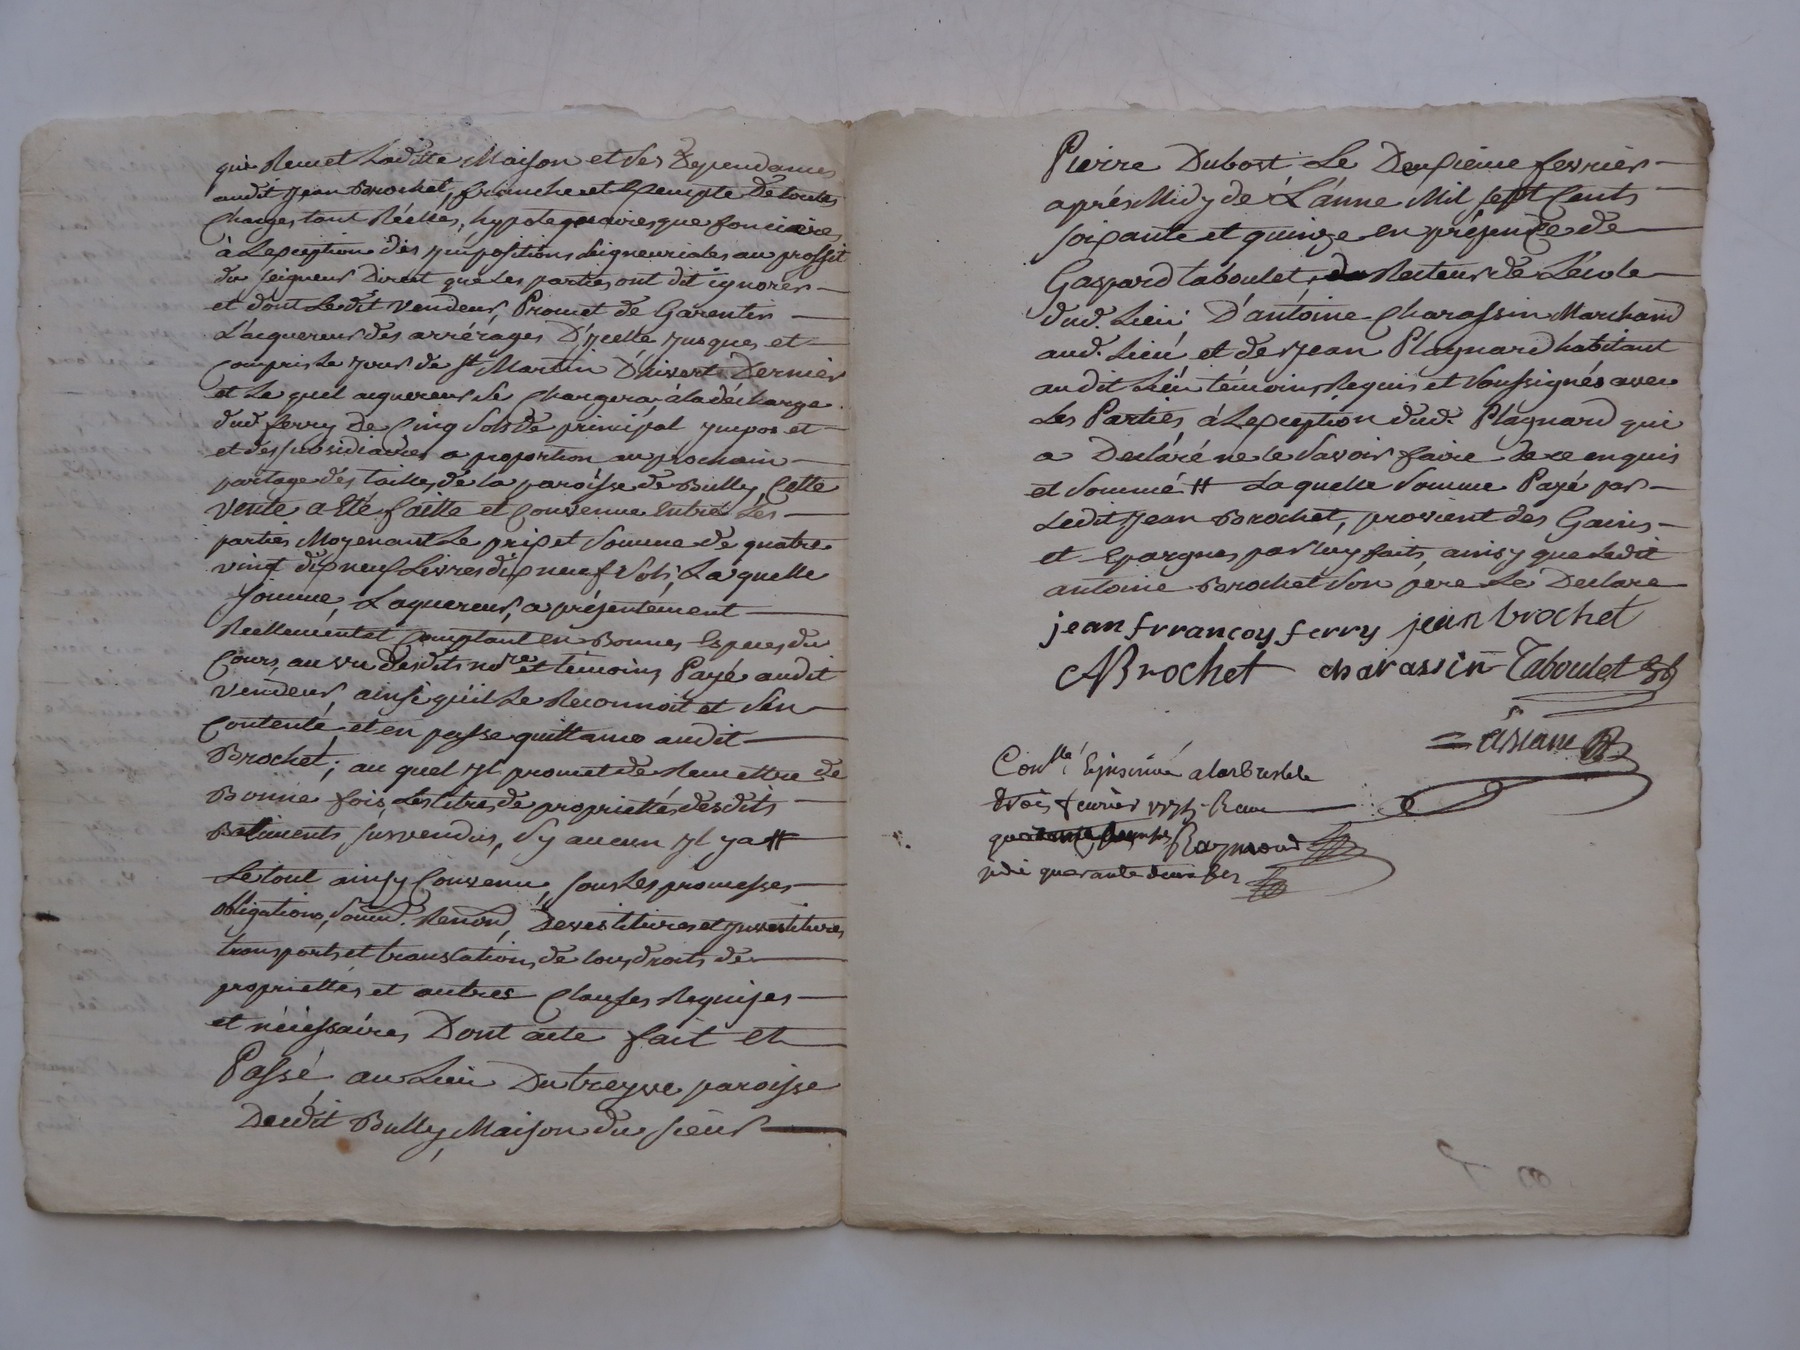 qui Remet Laditte Maison et Ses Dependances
audit Jean Brochet, franche et Exempte de toutes
Charges tant Réelles, hypotequaires que foncieres
à Lexception des ympositions seigneuriales au proffit
du seigneur Direct que Les parties ont dit ignorer
et dont Ledit vendeur, Promet de Garentir
L'acquereur des arrérages D'ycelle jusques et
compris Le jour de st Martin D'hivert Dernier
et Le quel acquereur Se Chargera à la décharge
dud. ferry De Cinq Sols de principal ympos et
et des subsidiaires a proportion au prochain
partage des tailles de la paroisse de Bully, Cette
vente a Eté faitte et Convenue Entre Les
parties Moyenant Le prix et Somme de quatre
vingt dix neuf Livres dix neuf Sols, La quelle
somme, Laquereur, a présentement
Réellement et Comptant en Bonnes Especes du
Cours, au vu desdits nore et témoins, Payé audit
vendeur, ainsi qu'il Le Reconnoit et S'en
Contente et en passe quittance audit
Brochet; au quel yl promet de Remettre de
Bonne fois Les titres de propriettés desdits
Batiments susvendus, S'y aucun yl y a #
Le tout ainsy Convenu, sous Les promesses
obligations, soumd. Renond, Devestitures et ynvestitures
transports et translations de tous droits de
propriettés et autres Clauses Requises
et nécessaires Dont acte fait Et
Passé au Lieu Du treyve paroisse
Deudit Bully, Maison du sieur
Pierre Dubost Le Deuxieme fevrier
après Midy de L'anne Mil sept Cents
soixante et quinze en présence de
Gaspard Taboulet, Recteur de L'école
dud. Lieu D'antoine Charassin Marchand
aud. Lieu et de Jean Plagnard habitant
audit Lieu témoins Requis et Soussignés avec
Les Parties à Lexception dud. Plagnard qui
a Declaré ne le Savoir faire de ce enquis
et Sommé # La quelle Somme Payé par
Ledit Jean Brochet, provient des Gains
et Epargnes par luy faits ainsy que Ledit
antoine Brochet Son père Le Declare
jean frrancoy ferry jean brochet
ABrochet charassin Taboulet
Conllé Et insinué a larbresle
trois fevrier 1775 Recu
Raymond
quarante deux sols